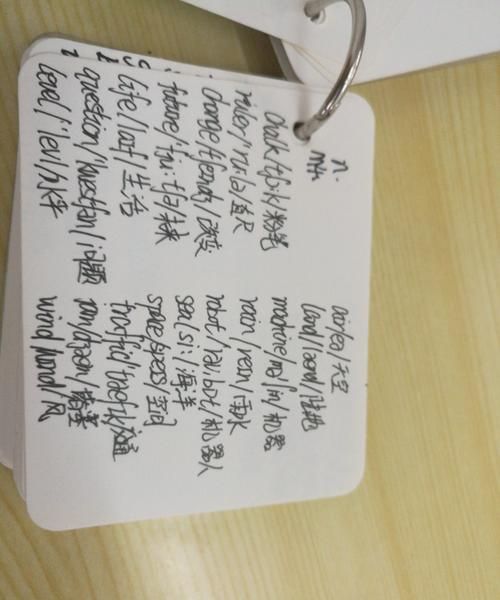 n.
chalk/tʃɔ:k/粉笔
ruler/'ru:lə/直尺
change/tʃeɪndʒ/改变
future/'fju:tʃə/未来
life/laɪf/生活
question/'kwestʃən/问题
level/'levl/水平
air/eə/天空
land/lænd/陆地
machine/mə'ʃi:n/机器
rain/reɪn/雨水
robot/'rəubɒt/机器人
sea/si:/海洋
space/speɪs/空间
traffic/'træfɪk/交通
jam/dʒæm/堵塞
wind/wɪnd/风